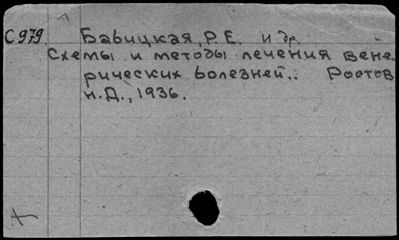 С 979 Бабицкая, Р.Е. и др.
Схемы и методы лечения вене-
рических болезней.. Ростов
н.Д., 1936.